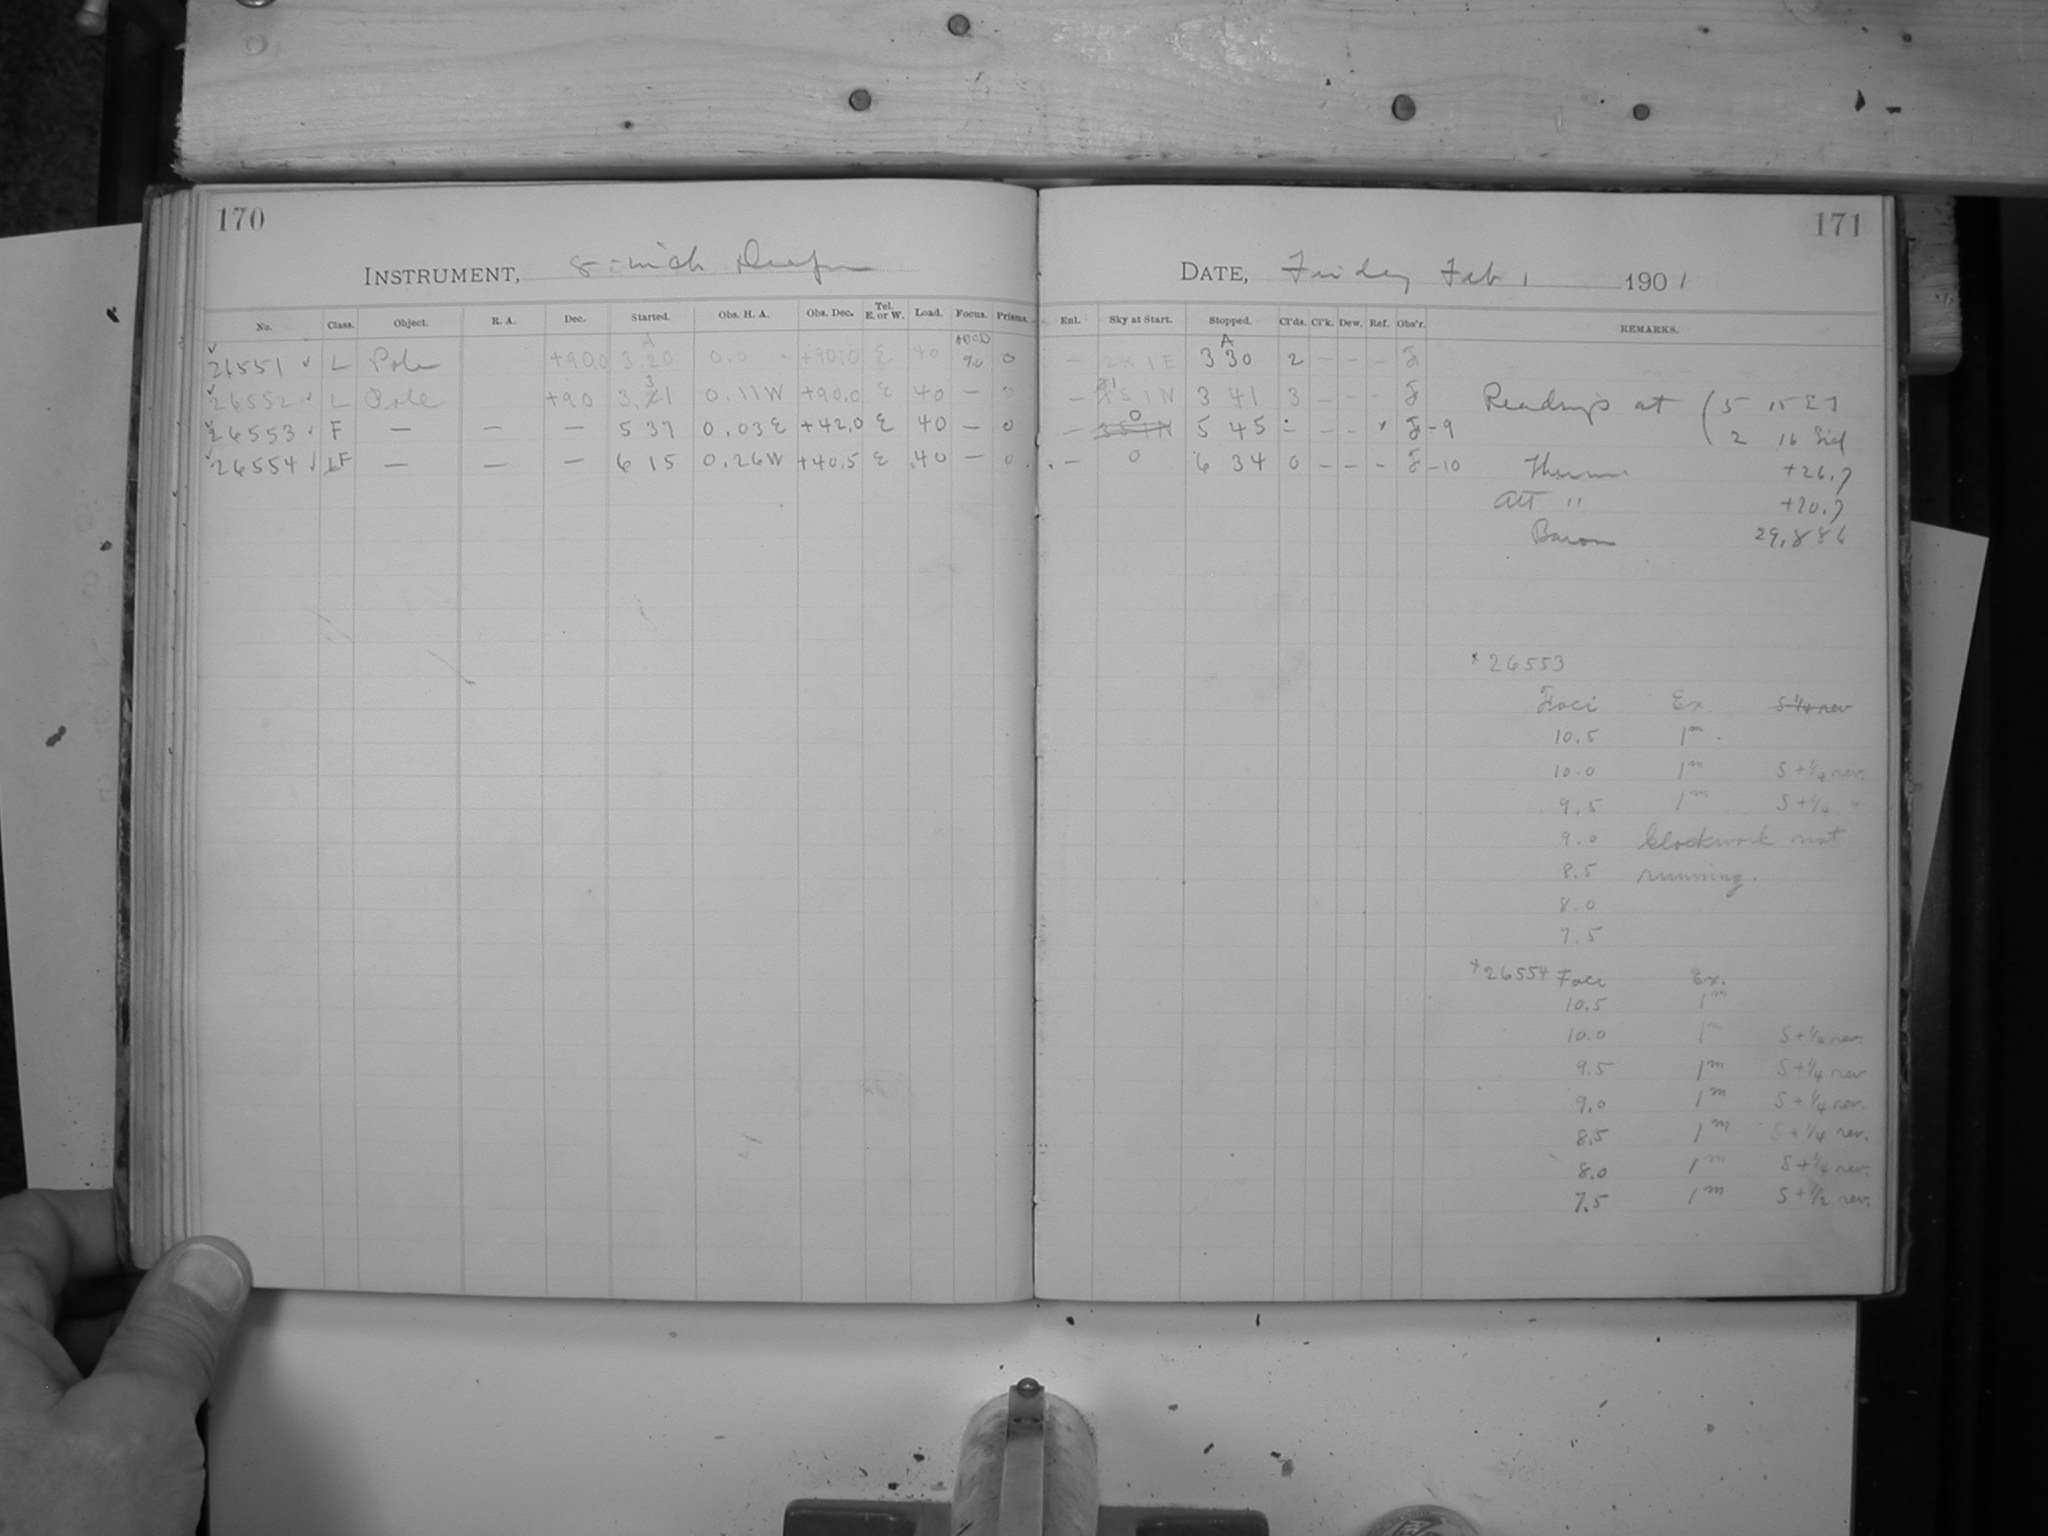 170
INSTRUMENT, 8-inch Draper
No. Class. Object. R. A. Dec. Started. Obs. H. A. Obs. Dec. Tel. E. or W. Load. Focus. Prisms.
A ABCD
26551 L Pole +90.0 3.20 0.0 +90.0 E 40 0
26552 L Pole +90 3.31 0.11W +90.0 E 40 — 0
26553 F — — — 5 37 0.03E +42.0 E 40 — 0
26554 F — — — 6 15 0.26W +40.5 E 40 — 0
171
DATE, Friday Feb 1 1901
Enl. Sky at Start. Stopped. Cl'ds. Cl'k. Dew. Ref. Obs'r. REMARKS.
A
— 2K1E 3 30 2 — — — F
— S1N 3 41 3 — — — F
— 0 5 45 — — F-9
— 0 6 34 0 — — — F-10
Readings at (5 15 ET
2 16 Sid
Therm +26.7
Att " +70.7
Barom 29.886
*26553
Foci Ex. S ¼ rev
10.5 1m.
10.0 1m S+¼ rev.
9.5 1m S+¼ "
9.0 Clockwork not
8.5 running.
8.0
7.5
*26554 Foci Ex.
10.5 1m
10.0 1m S+¼ rev.
9.5 1m S+¼ rev
9.0 1m S+¼ rev.
8.5 1m S+¼ rev.
8.0 1m S+¼ rev.
7.5 1m S+½ rev.